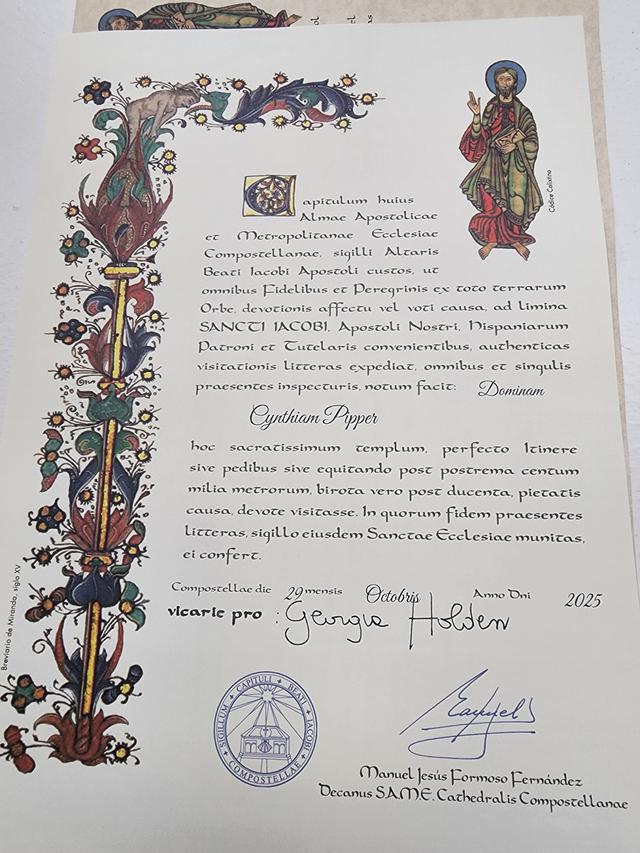 Códice Calixtino
Capitulum huius
Almae Apostolicae
et Metropolitanae Ecclesiae
Compostellanae, sigilli Altaris
Beati Iacobi Apostoli custos, ut
omnibus Fidelibus et Peregrinis ex toto terrarum
Orbe, devotionis affectu vel voti causa, ad limina
SANCTI IACOBI, Apostoli Nostri, Hispaniarum
Patroni et Tutelaris convenientibus, authenticas
visitationis litteras expediat, omnibus et singulis
praesentes inspecturis, notum facit: Dominam
Cynthiam Pipper
hoc sacratissimum templum, perfecto Itinere
sive pedibus sive equitando post postrema centum
milia metrorum, birota vero post ducenta, pietatis
causa, devote visitasse. In quorum fidem praesentes
litteras, sigillo eiusdem Sanctae Ecclesiae munitas,
ei confert.
Compostellae die 29 mensis Octobris Anno Dni 2025
vicarie pro : Georgia Holden
SIGILLUM CAPITULI BEATI IACOBI COMPOSTELLAE
Manuel Jesús Formoso Fernández
Decanus S.A.M.E. Cathedralis Compostellanae
Breviario de Miranda, siglo XV